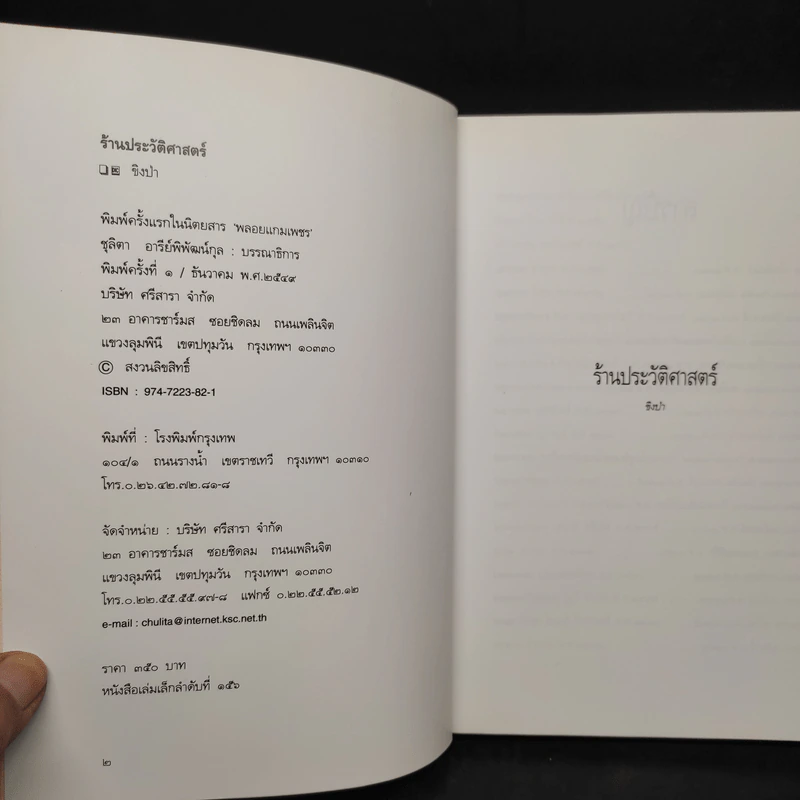 ร้านประวัติศาสตร์
❏ ชิงป่า
พิมพ์ครั้งแรกในนิตยสาร 'พลอยแกมเพชร'
ชุลิตา อารีย์พิพัฒน์กุล : บรรณาธิการ
พิมพ์ครั้งที่ ๑ / ธันวาคม พ.ศ.๒๕๔๙
บริษัท ศรีสารา จำกัด
๒๓ อาคารชาร์มส ซอยชิดลม ถนนเพลินจิต
แขวงลุมพินี เขตปทุมวัน กรุงเทพฯ ๑๐๓๓๐
© สงวนลิขสิทธิ์
ISBN : 974-7223-82-1
พิมพ์ที่ : โรงพิมพ์กรุงเทพ
๑๐๔/๑ ถนนรางน้ำ เขตราชเทวี กรุงเทพฯ ๑๐๓๑๐
โทร.๐.๒๖.๔๒.๗๒.๘๑-๘
จัดจำหน่าย : บริษัท ศรีสารา จำกัด
๒๓ อาคารชาร์มส ซอยชิดลม ถนนเพลินจิต
แขวงลุมพินี เขตปทุมวัน กรุงเทพฯ ๑๐๓๓๐
โทร.๐.๒๒.๕๕.๕๕.๙๗-๘ แฟกซ์ ๐.๒๒.๕๕.๕๒.๑๒
e-mail : chulita@internet.ksc.net.th
ราคา ๓๕๐ บาท
หนังสือเล่มเล็กลำดับที่ ๑๕๖
๒
ร้านประวัติศาสตร์
ชิงป่า